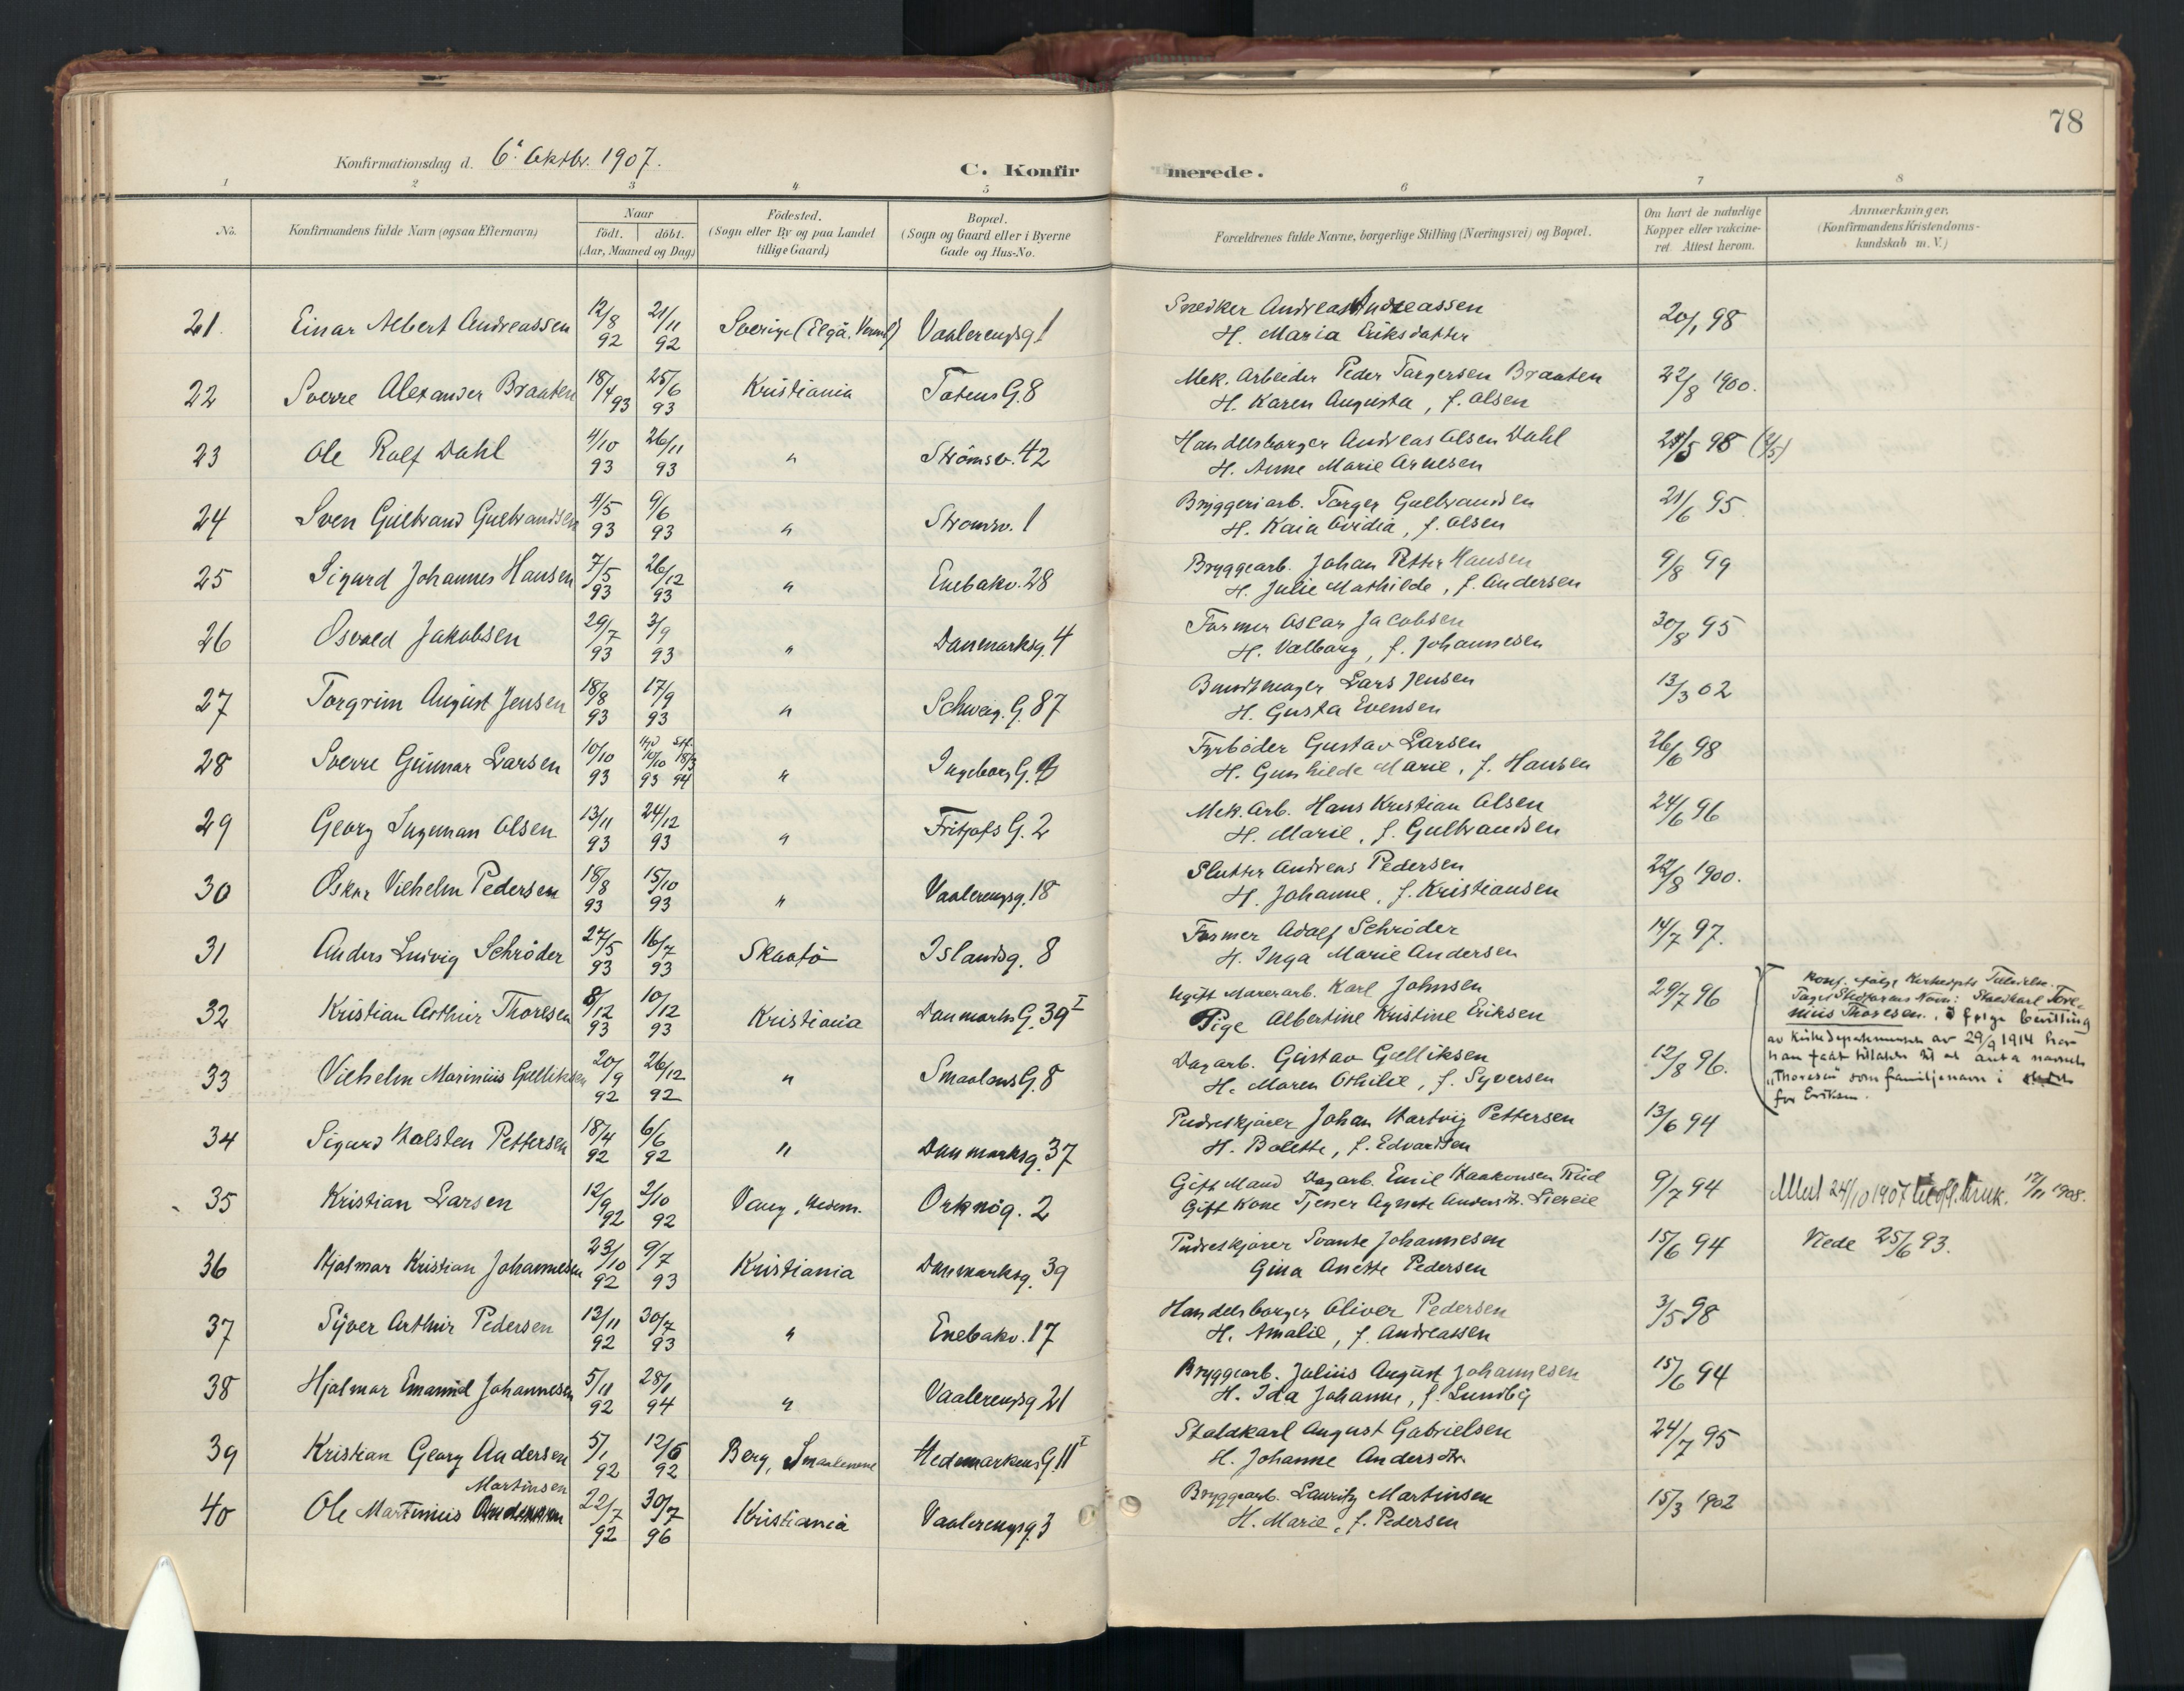 78
Konfirmationsdag d. 6. Oktbr. 1907.
C. Konfirmerede.
1 2 3 4 5 6 7 8
No.
Konfirmandens fulde Navn (ogsaa Efternavn)
Naar
födt. döbt.
(Aar, Maaned og Dag)
Födested.
(Sogn eller By og paa Landet
tillige Gaard)
Bopæl.
(Sogn og Gaard eller i Byerne
Gade og Hus-No.
Forældrenes fulde Navne, borgerlige Stilling (Næringsvei) og Bopæl.
Om havt de naturlige
Kopper eller vakcine-
ret. Attest herom.
Anmærkninger.
(Konfirmandens Kristendoms-
kundskab m. V.)
21. Einar Albert Andreassen 12/8 92 21/11 92 Sverige (Elgå, Verml.) Vaalerengsg 1 Snedker Andreas Andreassen 20/1 98
H. Maria Eriksdatter
22 Sverre Alexander Braaten 18/4 93 25/6 93 Kristiania Totens G. 8 Mek. Arbeider Peder Torgersen Braaten 22/8 1900.
H. Karen Augusta, f. Olsen
23 Ole Rolf Dahl 4/10 93 26/11 93 " Strømsv. 42 Handelsborger Andreas Olsen Dahl 98 (2/5)
H. Anne Marie Arnesen
24 Sven Gulbrand Gulbrandsen 4/5 93 9/6 93 " Strømsv. 1 Bryggeriarb. Torger Gulbrandsen 21/6 95
H. Kaia Ovidia, f. Olsen
25 Sigurd Johannes Hansen 7/5 93 26/12 93 " Enebakv. 28 Bryggearb. Johan Petter Hansen 9/8 99
H. Julie Mathilde, f. Andersen
26 Osvald Jakobsen 29/7 93 3/9 93 " Danmarksg. 4 Former Oscar Jacobsen 30/8 95
H. Valborg, f. Johannesen
27 Torgrim August Jensen 18/8 93 17/9 93 " Schweig. G. 87 Buntmager Lars Jensen 13/3 02
H. Gusta Evensen
28 Sverre Gunnar Larsen 10/10 93 10/10 93 18/3 94 " Ingeborg G. Fyrbøder Gustav Larsen 26/6 98
H. Gunhilde Marie, f. Hansen
29 Georg Ingeman Olsen 13/11 93 24/12 93 " Fritjofs G. 2 Mek. Arb. Hans Kristian Olsen 24/6 96
H. Marie, f. Gulbrandsen
30 Oskar Vilhelm Pedersen 18/8 93 15/10 93 " Vaalerengsg. 18 Slutter Andreas Pedersen 22/8 1900.
H. Johanne, f. Kristiansen
31 Anders Ludvig Schrøder 27/5 93 16/7 93 Skaatø Islandsg. 8 Former Adolf Schrøder 14/7 97.
H. Inga Marie Andersen
32 Kristian Arthur Thoresen 8/12 93 10/12 93 Kristiania Danmarks G. 39 I Ugift Murerarb. Karl Johnsen 29/7 96
Pige Albertine Kristine Eriksen
Konf. ifølge Kirkedepts Tilladelse.
Taget Stedfarens Navn: Staldkarl Tore-
nius Thoresen. I følge bevilling
av Kirkedepartementet av 29/9 1914 har
han faat tilladelse til at anta navnet
"Thoresen" som familjenavn i stedet
for Eriksen.
33 Vilhelm Marinius Gulliksen 20/9 92 26/12 92 " Smaalens G. 8 Dagarb. Gustav Gulliksen 12/8 96.
H. Maren Othilie, f. Syversen
34 Sigurd Halsten Pettersen 18/4 92 6/6 92 " Danmarksg. 37 Pudreskjører Johan Hartvig Pettersen 13/6 94
H. Bolette, f. Edvardsen
35 Kristian Larsen 12/9 92 2/10 92 Vang, Hedem. Orknøg. 2 Gift Mand Dagarb. Emil Haakonsen Rud 9/7 94
Gift Kone Tjener Agnete Andersdtr. Liereie
24/10 1907 til off. bruk. 17/11 1908.
36 Hjalmar Kristian Johannesen 23/10 92 9/7 93 Kristiania Danmarksg. 39 Pudreskjører Svante Johannesen 15/6 94 Viede 25/6 93.
Gina Anette Pedersen
37 Syver Arthur Pedersen 13/11 92 30/7 93 " Enebakv. 17 Handelsborger Oliver Pedersen 3/5 98
H. Amalie, f. Andreassen
38 Hjalmar Emanuel Johannesen 5/11 92 28/1 94 " Vaalerengsg 21 Bryggearb. Julius August Johannesen 15/6 94
H. Ida Johanne, f. Lundby
39 Kristian Georg Andersen 5/1 92 12/6 92 Berg, Smaalenene Hedemarkens G. 11 I Staldkarl August Gabrielsen 24/7 95
H. Johanne Andersdtr.
Martinsen
40 Ole Martinius Andersen 22/7 92 30/7 96 Kristiania Vaalerengsg. 3 Bryggearb. Lauritz Martinsen 15/3 1902
H. Marie, f. Pedersen